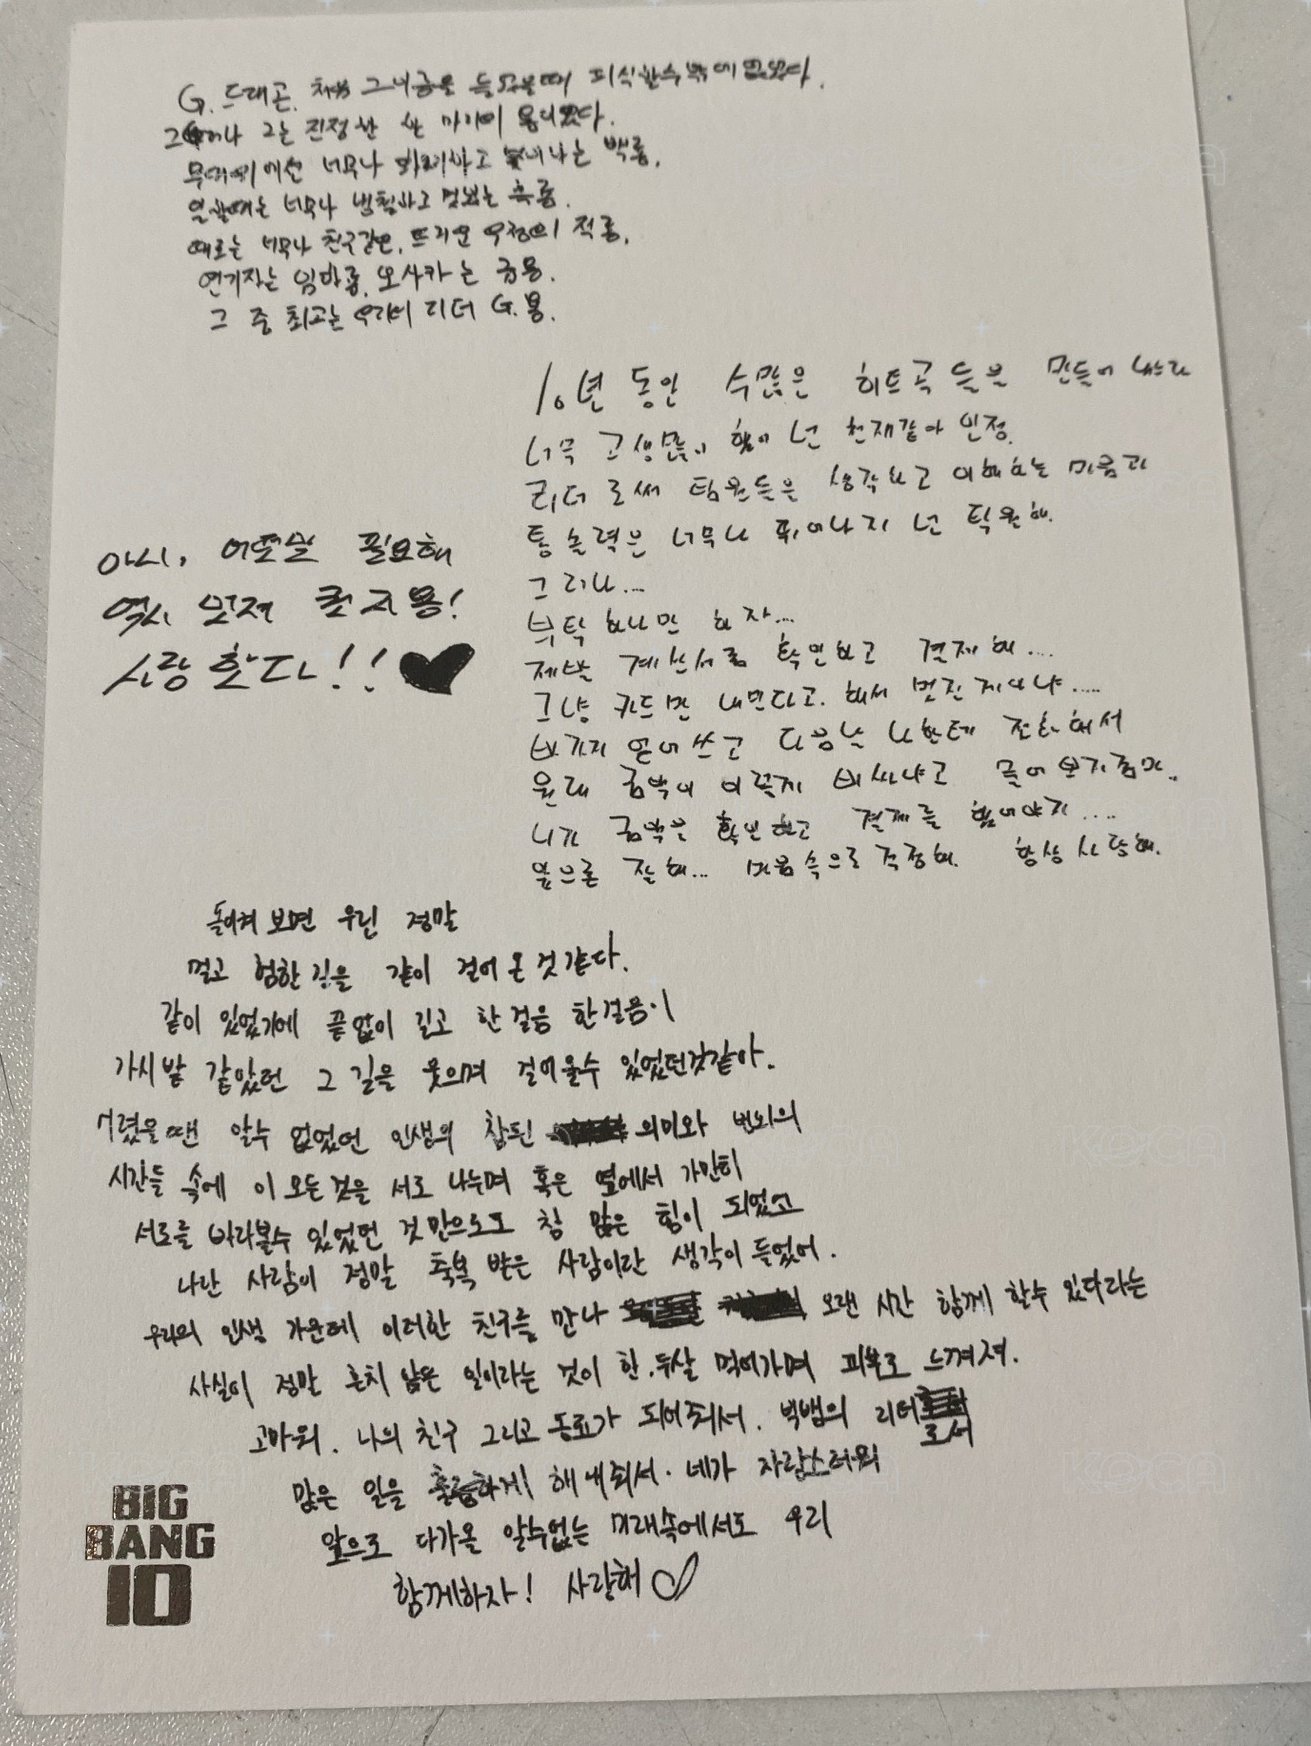 G. 드래곤. 처음 그 이름을 들었을때 피식할수 밖에 없었다.
그러나 그는 진정한 싸나이 용이었다.
무대위에선 너무나 화려하고 빛나는 백룡,
일할때는 너무나 냉철하고 멋있는 흑룡.
때로는 너무나 친구같은, 뜨거운 우정의 적룡,
연기자는 임하룡, 오사카는 쿠룡.
그 중 최고는 우리의 리더 G.용.
10년 동안 수많은 히트곡들을 만들어 내느라
너무 고생많이 했어 넌 천재같아 인정.
리더로써 팀원들을 생각하고 이해하는 마음과
통솔력은 너무나 뛰어나지 넌 탁월해.
그러나...
부탁 하나만 하자...
제발 계산서를 확인하고 결제해....
그냥 카드만 내민다고 해서 멋진게아냐.....
바가지 얻어쓰고 다음날 나한테 전화해서
원래 금액이 이렇게 비싸냐고 물어보지좀마.
니가 금액을 확인하고 결제를 했어야지....
앞으론 잘해... 마음속으로 걱정해. 항상 사랑해.
아씨, 어떤말 필요해
역시 먼저 권지용!
사랑한다!! ♥
돌이켜 보면 우린 정말
멀고 험한 길을 같이 걸어 온것 같다.
같이 있었기에 끝없이 길고 한걸음 한걸음이
가시밭 같았던 그 길을 웃으며 걸어올수 있었던것같아.
어렸을땐 알수 없었던 인생의 참된 의미와 번뇌의
시간들 속에 이 모든것을 서로 나누며 혹은 옆에서 가만히
서로를 바라볼수 있었던 것만으로도 참 많은 힘이 되었고
나란 사람이 정말 축복 받은 사람이란 생각이 들었어.
우리의 인생 가운데 이러한 친구를 만나 오랜 시간 함께 할수 있다라는
사실이 정말 흔치 않은 일이라는 것이 한.두살 먹어가며 피부로 느껴져.
고마워. 나의 친구 그리고 동료가 되어줘서. 빅뱅의 리더로서
많은 일을 훌륭하게 해 내줘서. 네가 자랑스러워
앞으로 다가올 알수없는 미래속에서도 우리
함께하자! 사랑해 ♡
BIG
BANG
10